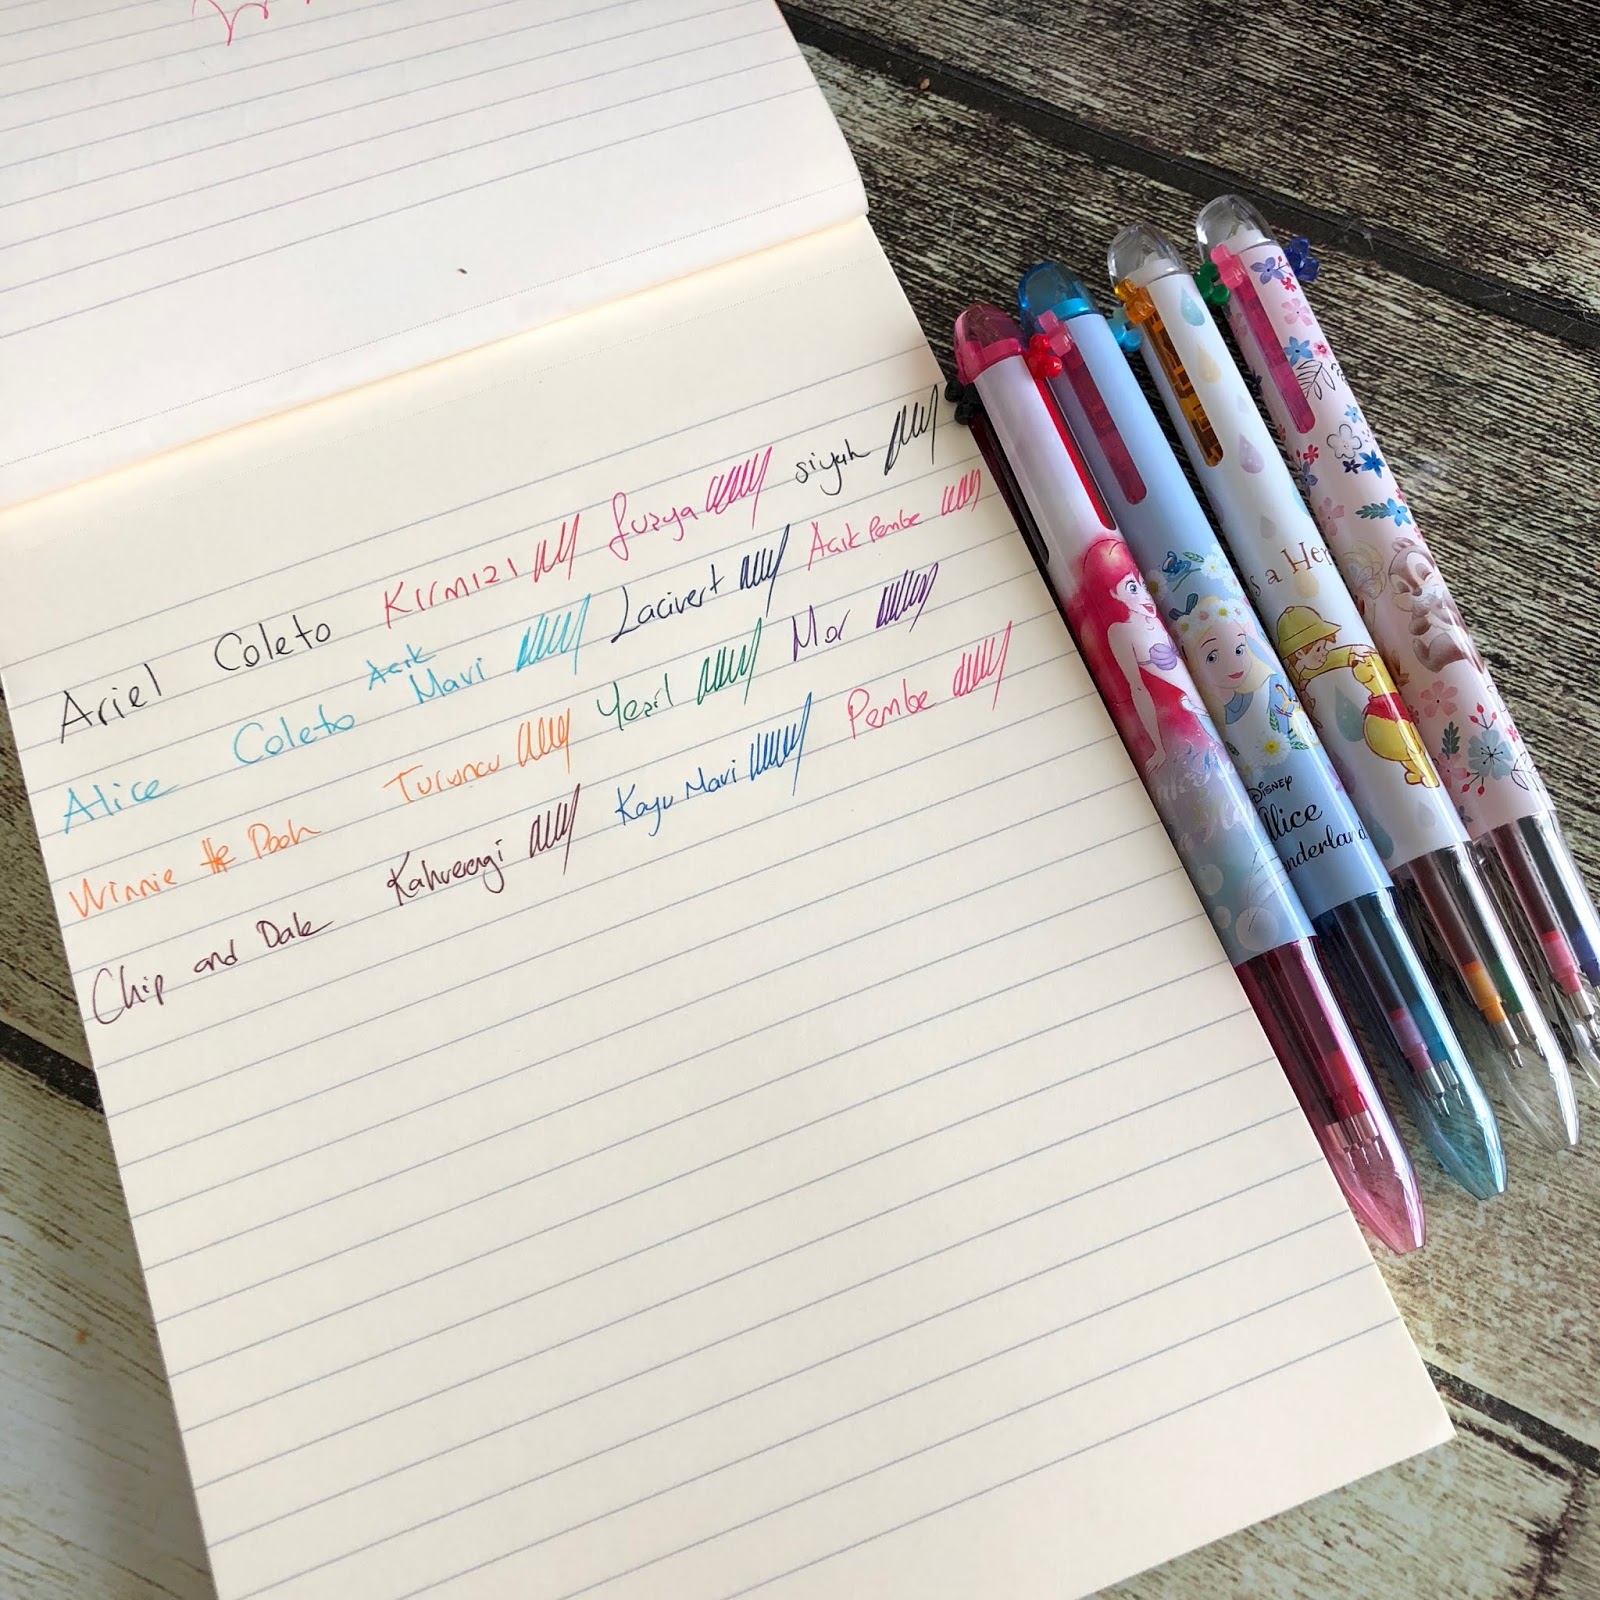 Ariel Coleto Kırmızı fuzya siyah
Alice Coleto Acık Mavi Lacivert Acık Pembe
Winnie the Pooh Turuncu Yeşil Mor
Chip and Dale Kahverengi Koyu Mavi Pembe
s a Her
Disney
Alice
nderland